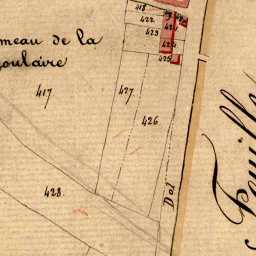 418
422
423
424
425
meau de la
oulaire
417
427
426
428.
Dol
Feuille